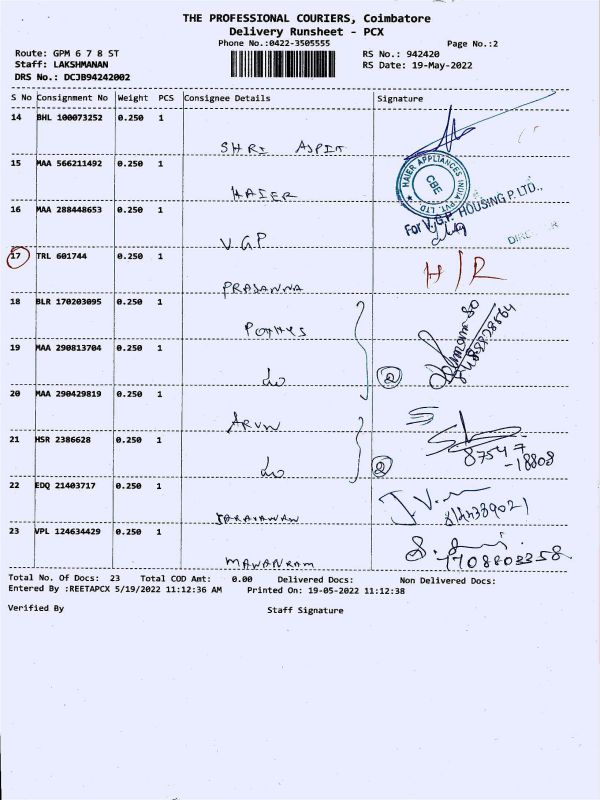 THE PROFESSIONAL COURIERS, Coimbatore
Delivery Runsheet - PCX
Phone No.:0422-3505555
Page No.:2
Route: GPM 6 7 8 ST
RS No.: 942420
Staff: LAKSHMANAN
RS Date: 19-May-2022
DRS No.: DCJB94242002
S No Consignment No Weight PCS Consignee Details Signature
14 BHL 100073252 0.250 1
SHRI
15 MAA 566211492 0.250 1
HAIER
HAIER APPLIANCES INDIA PVT. LTD.
CBE
16 MAA 288448653 0.250 1
V G P
For V.G.P. HOUSING P. LTD.,
17 TRL 601744 0.250 1
PRASANNA
H/R
18 BLR 170203095 0.250 1
POTHYS
19 MAA 290813704 0.250 1
do
2
20 MAA 290429819 0.250 1
ARUN
21 HSR 2386628 0.250 1
do
2
87547
-18808
22 EDQ 21403717 0.250 1
23 VPL 124634429 0.250 1
7708803358
Total No. Of Docs: 23 Total COD Amt: 0.00 Delivered Docs: Non Delivered Docs:
Entered By :REETAPCX 5/19/2022 11:12:36 AM Printed On: 19-05-2022 11:12:38
Verified By Staff Signature